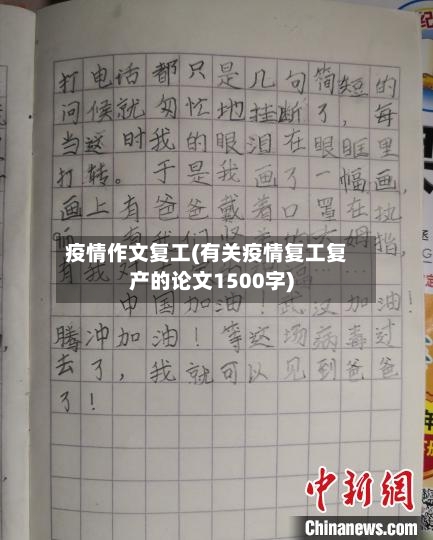 打电话都只是几句简短的
问候就匆忙地挂断了，每
当这时我的眼泪在眼眶里
打转。于是我画了一幅画，
画上有爸爸戴着口罩在执
疫情作文复工(有关疫情复工复
产的论文1500字)
中国加油！武汉加油！
腾冲加油！等这场病毒过
去了，我就可以见到爸爸
了！
中新网
Chinanews.com